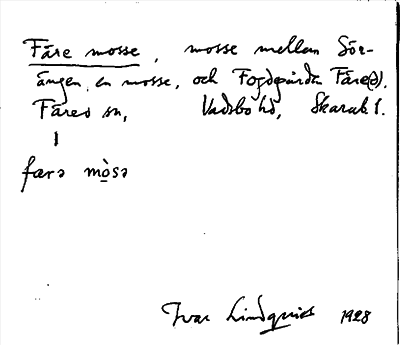 Fåre mosse, mosse mellan Sör-
ängen, en mosse, och Fogdegärdet Fåre(d).
Fåred sn, Vadsbo hd, Skarab l.
1
færə mòsə
Ivar Lindquist 1928